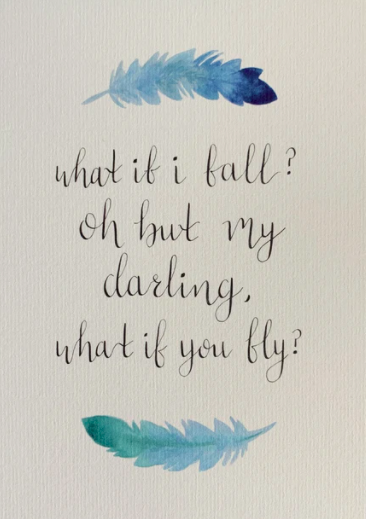 what if i fall?
oh but my
darling,
what if you fly?